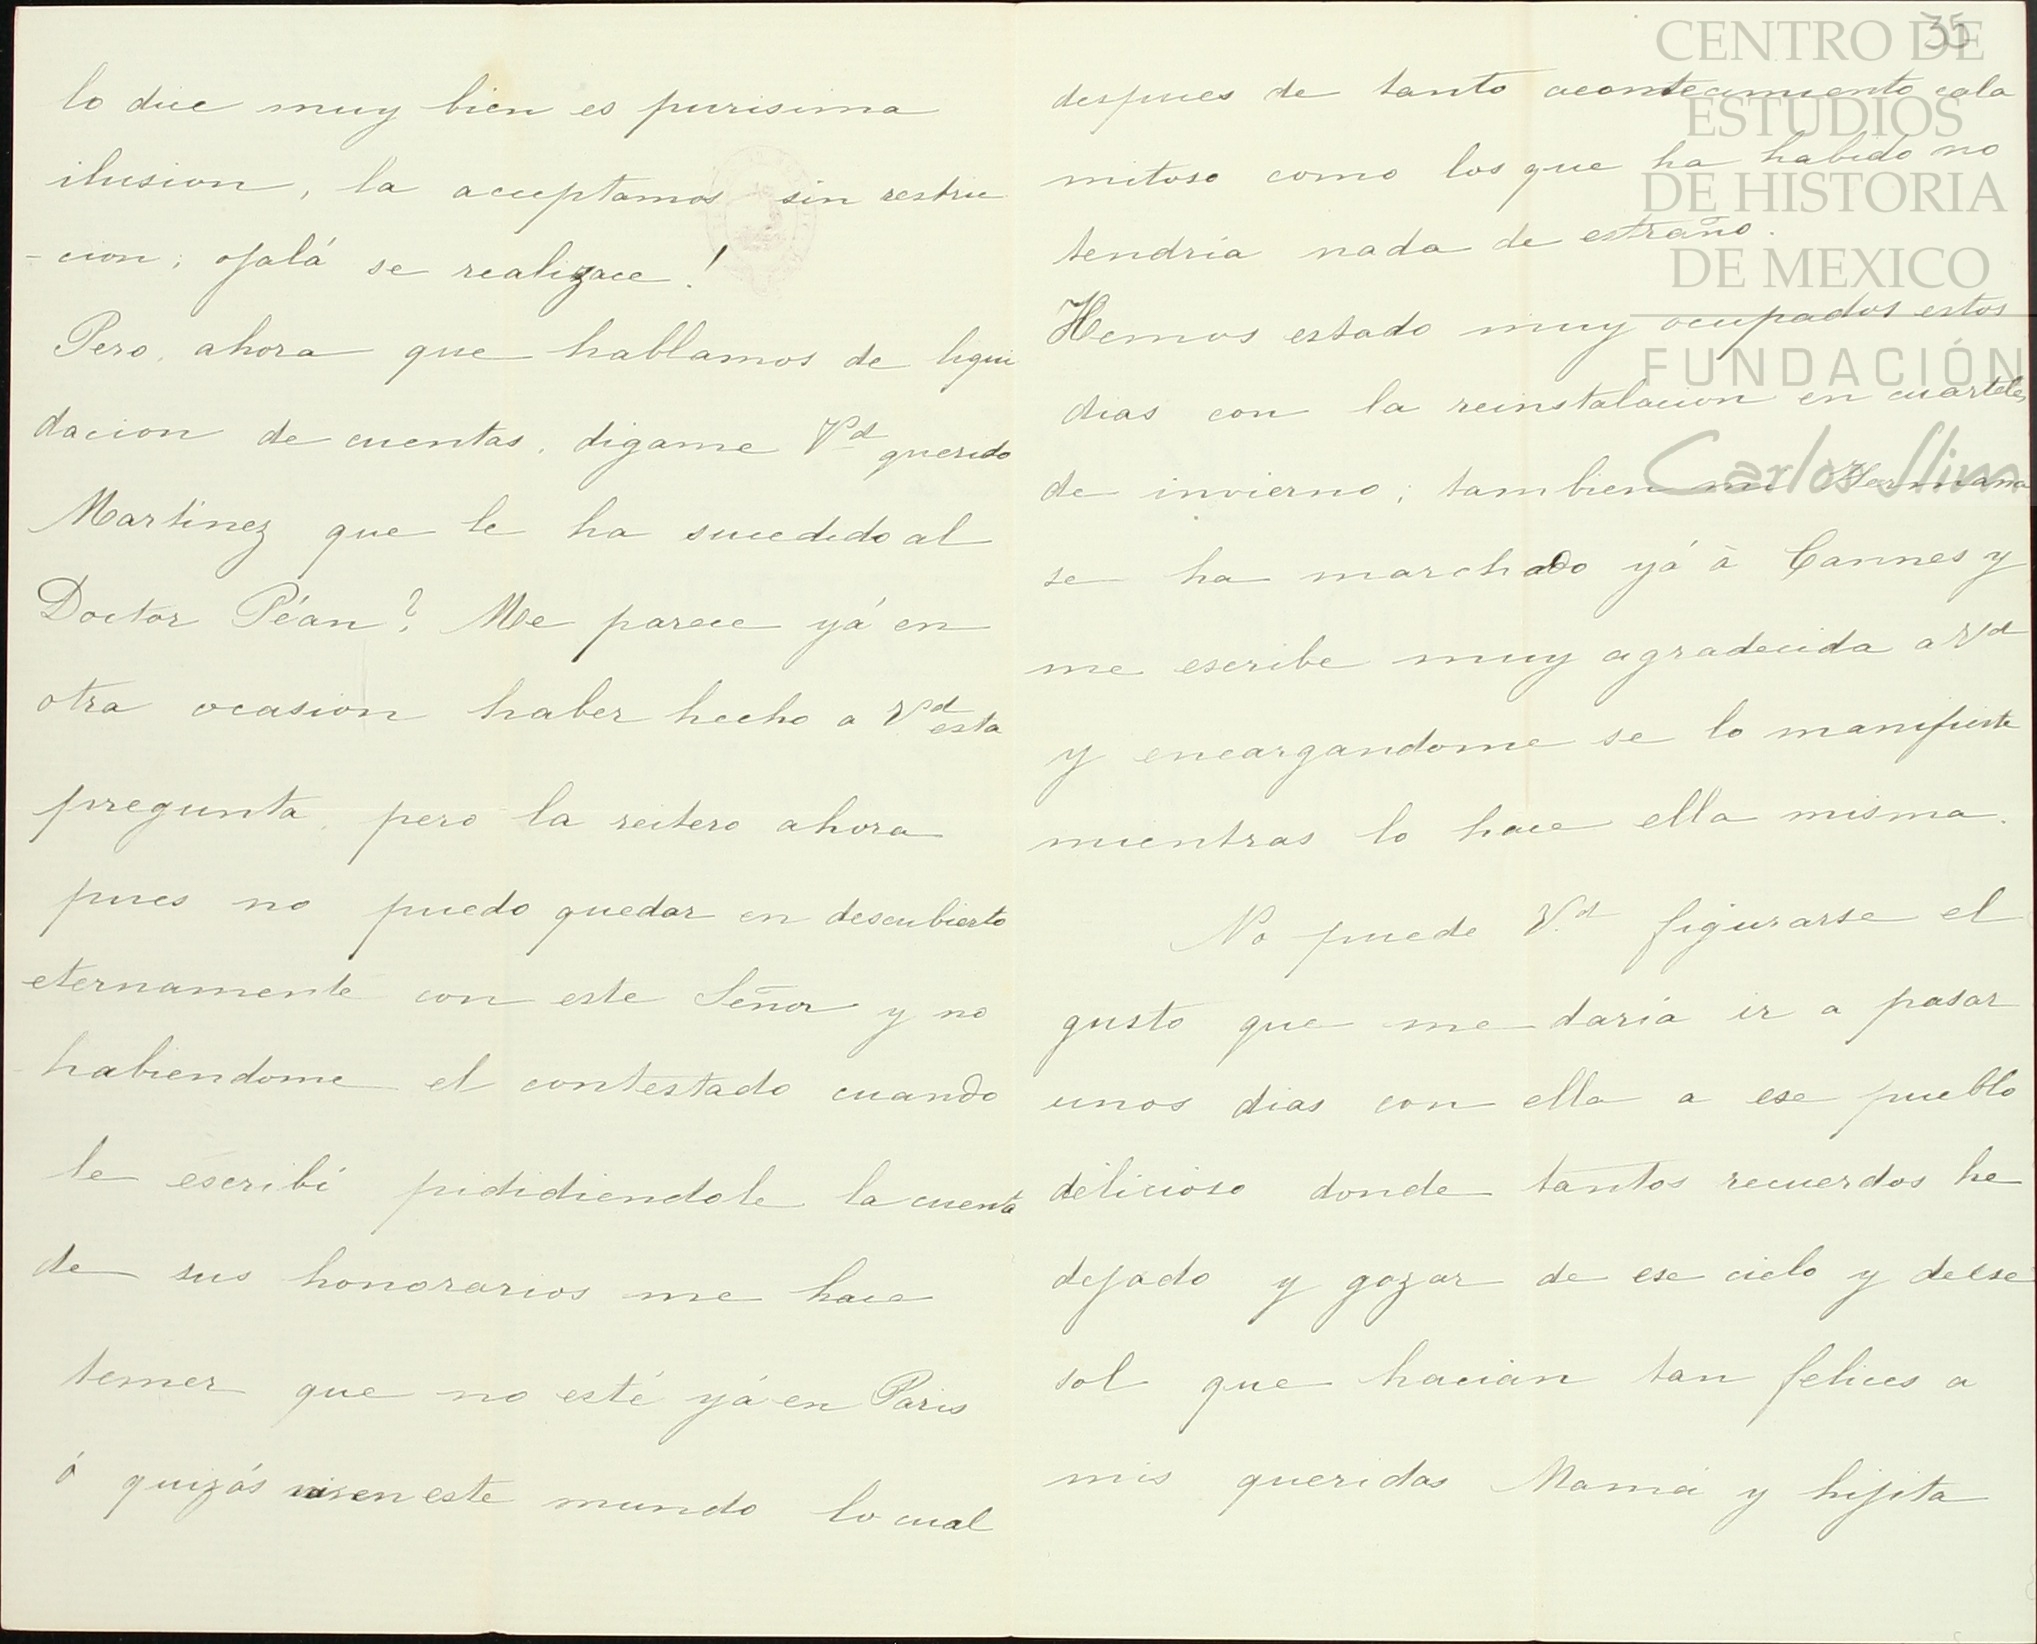 lo dice muy bien es purisima
ilusion, la acceptamos sin restric
-cion; ojalá se realizace!
Pero, ahora que hablamos de liqui
dacion de cuentas, digame Vd querido
Martinez que le ha sucedido al
Doctor Péan? Me parece yá en
otra ocasion haber hecho a Vd esta
pregunta, pero la reitero ahora
pues no puedo quedar en descubierto
eternamente con este Señor y no
habiendome el contestado cuando
le escribí pididiendole la cuenta
de sus honorarios me hace
temer que no esté yá en Paris
ó quizás ni en este mundo lo cual
35
despues de tanto acontecimiento cala
mitoso como los que ha habido no
tendria nada de estraño.
Hemos estado muy ocupados estos
dias con la reinstalacion en cuarteles
de invierno; tambien mi Hermana
se ha marchado yá à Cannes y
me escribe muy agradecida a Vd
y encargandome se lo manifieste
mientras lo hace ella misma.
No puede Vd figurarse el
gusto que me daría ir a pasar
unos dias con ella a ese pueblo
delicioso donde tantos recuerdos he
dejado y gozar de ese cielo y de ese
sol que hacian tan felices a
mis queridas Mamá y hijita
CENTRO DE
ESTUDIOS
DE HISTORIA
DE MEXICO
FUNDACIÓN
Carlos Slim